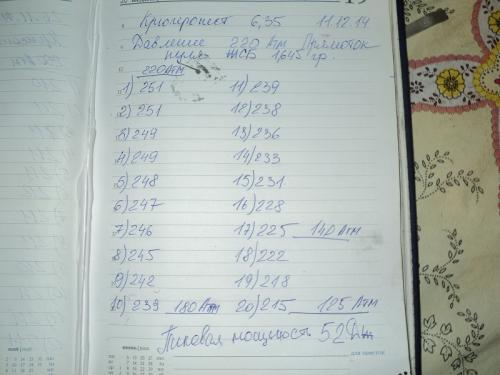 Кронпропест 6,35 11.12.14
Давление 220 Атм Прямоток
пуля ЖСБ 1,645 гр.
220 Атм
1) 251 11) 239
2) 251 12) 238
3) 249 13) 236
4) 249 14) 233
5) 248 15) 231
6) 247 16) 228
7) 246 17) 225 140 Атм
8) 245 18) 222
9) 242 19) 218
10) 239 180 Атм 20) 215 125 Атм
Пиковая мощность 52 Дж
для заметок